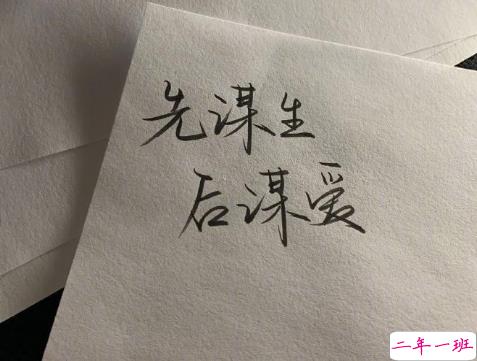 先谋生
后谋爱
二年一班